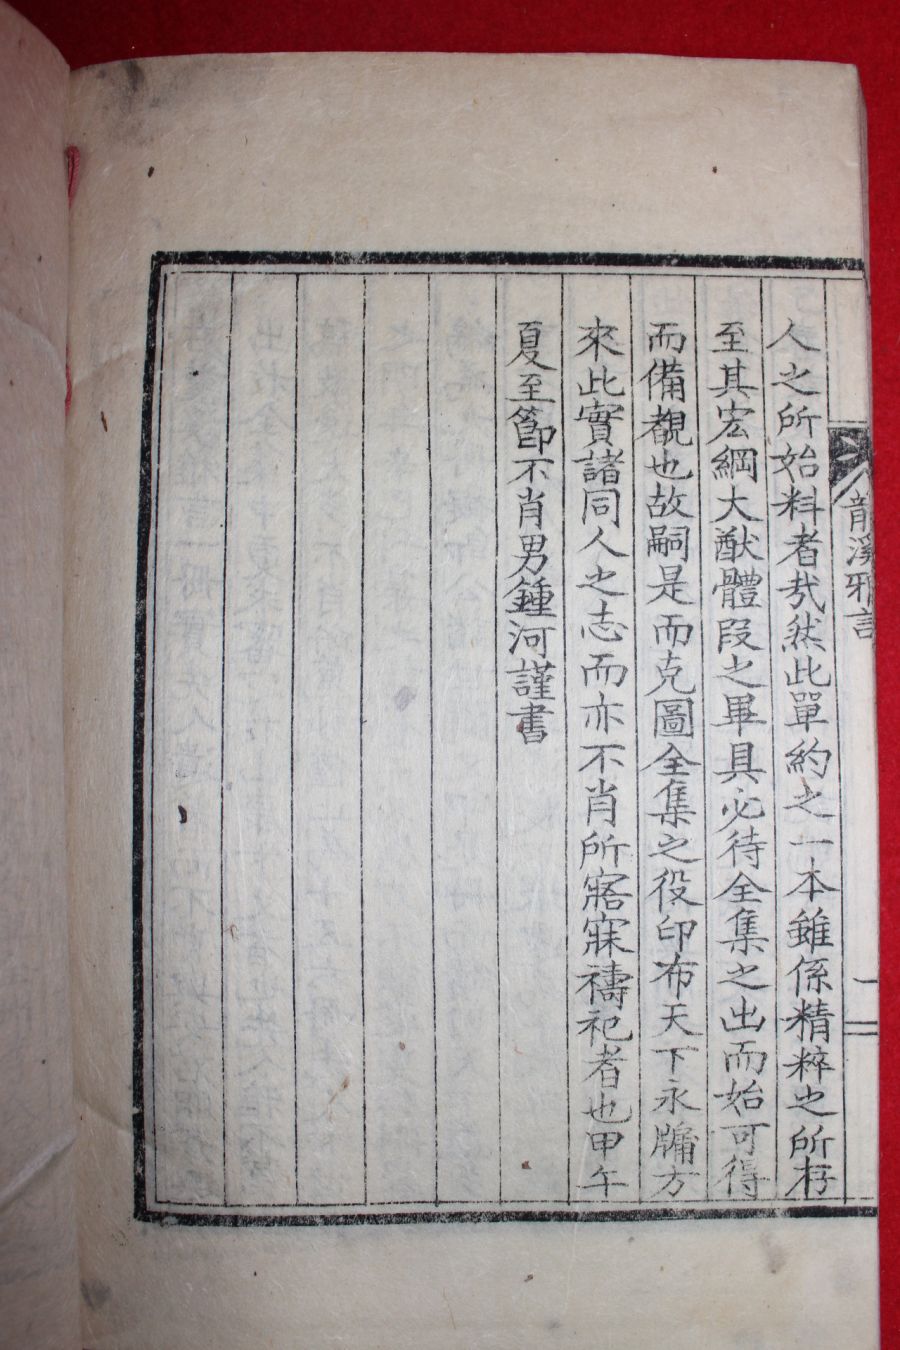 龍溪雅言
一
人之所始料者哉然此單約之一本雖係精粹之所存
至其宏綱大猷體段之畢具必待全集之出而始可得
而備覩也故嗣是而克圖全集之役印布天下永牖方
來此實諸同人之志而亦不肖所寤寐禱祀者也甲午
夏至節不肖男鍾河謹書